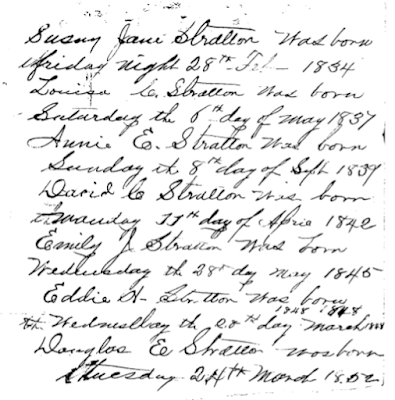 Susny Jane Stratton was born
friday night 28th Feb - 1834
Louisa C. Stratton was born
Saturday the 6th day of may 1837
Annie E. Stratton was born
Sunday th 8th day of Sept 1839
David C Stratton was born
th monday 11th day of Aprie 1842
Emily J Stratton was born
Wednesday th 28th day may 1845
Eddie H- Stratton was born
1848 1848
th Wednesday the 20th day march
Douglas E Stratton was born
thuesday 24th March 1852